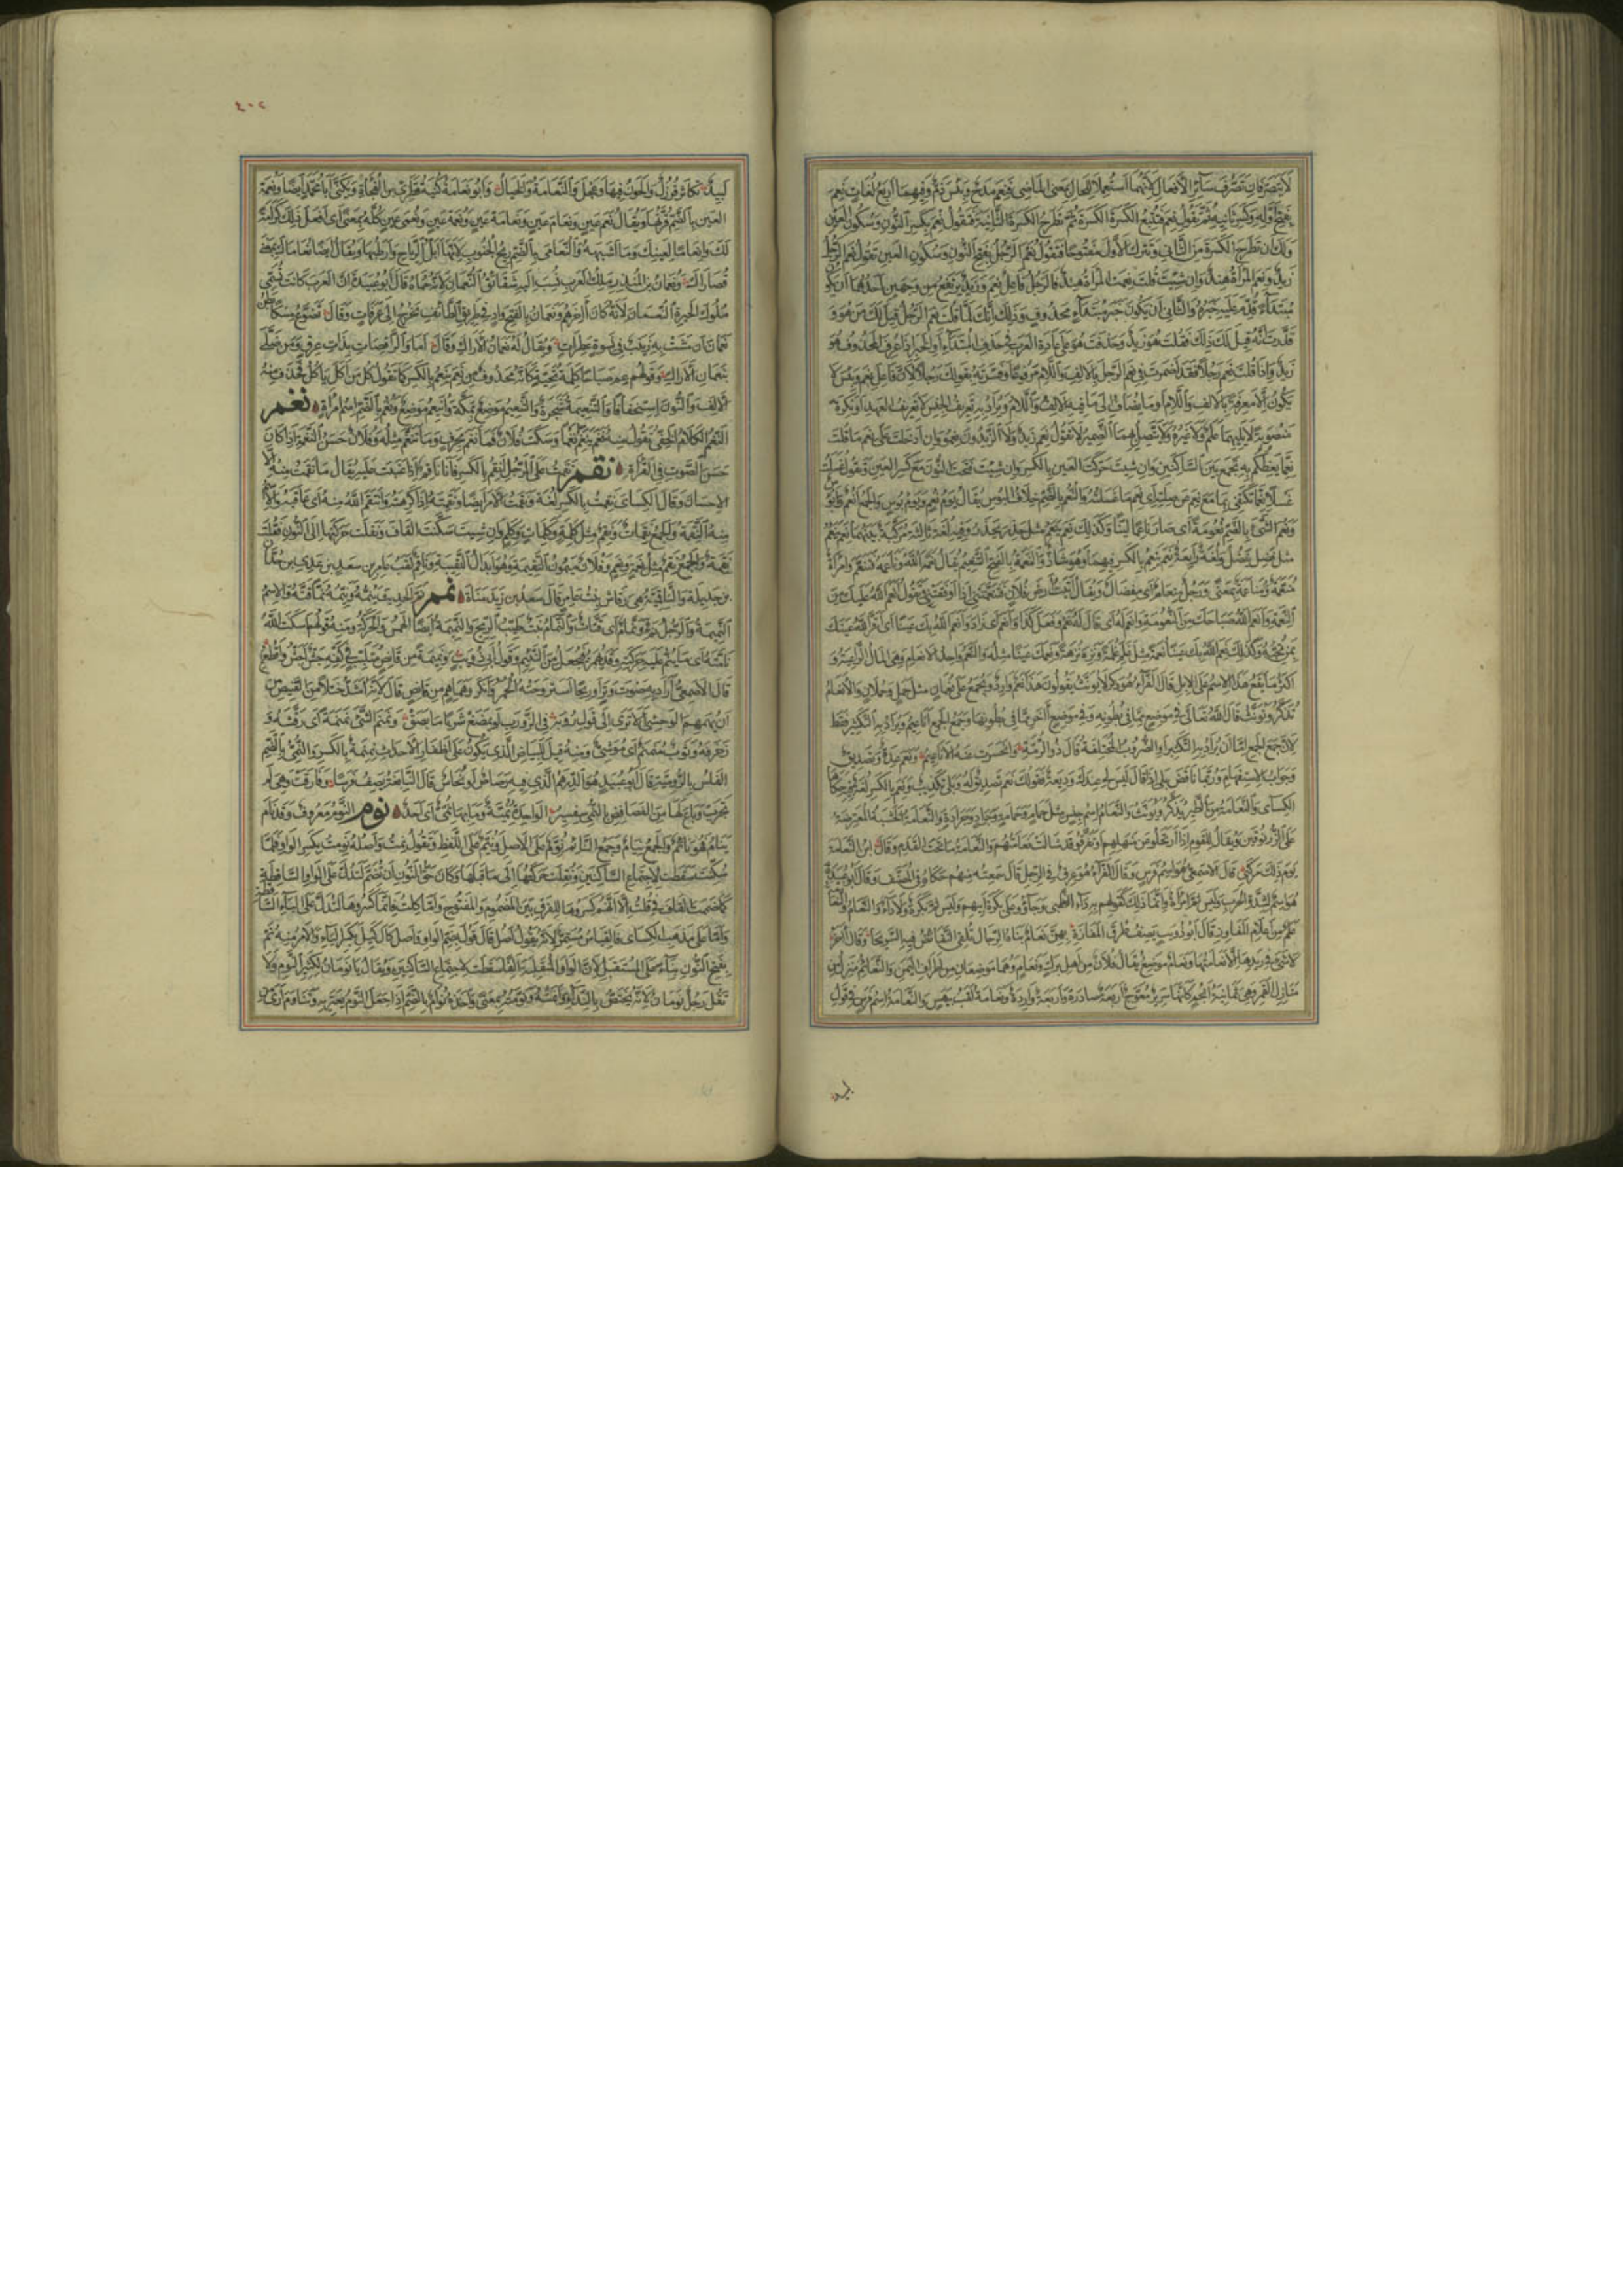 لا يتصرفان تصرف سائر الأفعال لأنهما استعملا للحال بمعنى الماضي فنعم مدح وبئس ذم وفيهما أربع لغات نعم
بفتح أوله وكسر ثانيه ثم تقول نعم فتتبع الكسرة الكسرة ثم تطرح الكسرة الثانية فتقول نعم بكسر النون وسكون العين
ولك أن تطرح الكسرة من الثاني وتترك الأول مفتوحا فتقول نعم الرجل بفتح النون وسكون العين تقول نعم الرجل
زيد ونعم المرأة هند وإن شئت قلت نعمت المرأة هند فالرجل فاعل نعم وزيد يرتفع من وجهين أحدهما أن يكون
مبتدأ قدم عليه خبره والثاني أن يكون خبر مبتدأ محذوف وذلك أنك لما قلت نعم الرجل قيل لك من هو أو
قدرت أنه قيل لك ذلك فقلت هو زيد وحذفت هو على عادة العرب في حذف المبتدأ أو الخبر إذا عرف المحذوف هو
زيد وإذا قلت نعم رجلا فقد أضمرت في نعم الرجل بالألف واللام مرفوعا وفسرته بقولك رجلا لأن فاعل نعم وبئس لا
يكون إلا معرفة بالألف واللام أو ما يضاف إلى ما فيه الألف واللام ويراد به تعريف الجنس لا تعريف العهد أو نكرة
منصوبة لا يليهما علم ولا غيره ولا يتصل بهما الضمير لا تقول نعم زيد ولا الزيدون نعموا وإن أدخلت على نعم ما قلت
نعما يعظكم به تجمع بين الساكنين وإن شئت حركت العين بالكسر وإن شئت فتحت النون مع كسر العين وتقول غسلت
غسلا نعما تكتفي بما مع نعم عن صلته أي نعم ما غسلته والنعم بالضم خلاف البؤس يقال يوم نعم ويوم بؤس والجمع أنعم وأبؤس
ونعم الشيء بالضم نعومة أي صار ناعما لينا وكذلك نعم ينعم مثل حذر يحذر وفيه لغة ثالثة مركبة بينهما نعم ينعم
مثل فضل يفضل ولغة رابعة نعم ينعم بالكسر فيهما وهو شاذ والنعمة بالفتح التنعيم يقال نعمه الله وناعمه فتنعم وامرأة
منعمة ومناعمة بمعنى ورجل منعام أي مفضال ويقال أتيت أرض فلان فتنعمتني إذا وافقتني وتقول أنعم الله عليك من
النعمة وأنعم الله صباحك من النعومة وأنعم له أي قال له نعم وفعل كذا وأنعم أي زاد وأنعم الله بك عينا أي أقر الله عينك
بمن تحبه وكذلك نعم الله بك عينا نعمة مثل غلم غلمة ونزه نزهة ونعمك عينا مثله والنعم واحد الأنعام وهي المال الراعية و
أكثر ما يقع هذا الاسم على الإبل قال الفراء هو ذكر لا يؤنث يقولون هذا نعم وارد ويجمع على نعمان مثل حمل وحملان والأنعام
تذكر وتؤنث قال الله تعالى في موضع مما في بطونه وفي موضع آخر مما في بطونها وجمع الجمع أناعيم ويراد به التكثير فقط
لأن جمع الجمع إما أن يراد به التكثير أو الضروب المختلفة قال ذو الرمة وانحسرت عنه الأناعيم ونعم عدة وتصديق
وجواب الاستفهام وربما ناقض بلى إذا قال ليس لي عندك وديعة فقولك نعم تصديق له وبلى تكذيب ونعم بالكسر لغة فيه حكاها
الكسائي والنعامة من الطير يذكر ويؤنث والنعام اسم جنس مثل حمام وحمامة وجراد وجرادة والنعامة الخشبة المعترضة
على الزرنوقين ويقال للقوم إذا ارتحلوا عن منهلهم أو تفرقوا قد شالت نعامتهم والنعامة ما تحت القدم وقال ابن النعامة
يوم ذلك مركبي قال الأصمعي هو اسم فرس وقال الفراء هو عرق في الرجل قال سمعته منهم حكاه في المصنف وقال أبو عبيدة
هو اسم لشدة الحرب وليس ثم امرأة وإنما ذلك كقولهم به داء الظبي وجاؤوا على بكرة أبيهم وليس ثم بكرة ولا داء والنعام والنعامة
علم من أعلام المفاوز قال أبو ذؤيب يصف طرق المفازة بهن نعام بناه الرجال تلقي النفائض فيه السريحا وقال آخر
لا شيء في ريدها إلا نعامتها ونعام موضع يقال فلان من أهل برك ونعام وهما موضعان من أطراف اليمن والنعائم منزل من
منازل القمر وهي ثمانية أنجم كأنها سرير معوج أربعة صادرة وأربعة واردة ونعامة لقب بيهس والنعامة اسم فرس في قول
لبيد
٤٠٢
لبيد تكاثر قرزل والجون فيها وعجلى والنعامة والخيال وأبو نعامة كنية قطري بن الفجاءة ويكنى أبا محمد أيضا ونعمة
العين بالضم قرتها ويقال نعم عين ونعام عين ونعامة عين ونعمة عين ونعمى عين كله بمعنى أي أفعل ذلك كرامة
لك وإنعاما لعينك وما أشبهه والنعامى بالضم ريح الجنوب لأنها أبل الرياح وأرطبها ويقال أيضا نعاماك بمعنى
قصاراك ونعمان بن المنذر ملك العرب نسب إليه شقائق النعمان لأنه حماه قال أبو عبيدة إن العرب كانت تسمي
ملوك الحيرة النعمان لأنه كان آخرهم ونعمان بالفتح واد في طريق الطائف يخرج إلى عرفات وقال تضوع مسكا بطن
نعمان أن مشت به زينب في نسوة عطرات ويقال له نعمان الأراك وقال أما والراقصات بذات عرق ومن صلى
بنعمان الأراك وقولهم عم صباحا كلمة تحية كأنه محذوف من نعم ينعم بالكسر كما تقول كل من أكل يأكل فحذف منه
الألف والنون استخفافا والتنعيمة شجرة والتنعيم موضع بمكة وأنيعم موضع ونعم بالضم اسم امرأة نغم
النغم الكلام الخفي تقول منه نغم ينغم نغما وسكت فلان فما نغم بحرف وما تنغم مثله وفلان حسن النغمة إذا كان
حسن الصوت في القراءة نقم نقمت على الرجل أنقم بالكسر فأنا ناقم إذا عتبت عليه يقال ما نقمت منه إلا
الإحسان وقال الكسائي نقمت بالكسر لغة ونقمت الأمر أيضا ونقمته إذا كرهته وانتقم الله منه أي عاقبه والاسم
منه النقمة والجمع نقمات ونقم مثل كلمة وكلمات وكلم وإن شئت سكنت القاف ونقلت حركتها إلى النون فقلت
نقمة والجمع نقم مثل نعمة ونعم وفلان ميمون النقيمة وهو إبدال النقيبة وناقم لقب عامر بن سعد بن عدي بن جدان
بن جديلة والناقمية هي رقاش بنت عامر قال سعد بن زيد مناة نمم نم الحديث ينمه وينمه نما أي قته والاسم
النميمة والرجل نم ونمام أي قتات والنمام نبت طيب الريح والنميمة أيضا الهمس والحركة ومنه قولهم أسكت الله
نامته أي ما ينم عليه من حركته وقد يهمز فيجعل من النئيم وقول أبي ذؤيب ونميمة من قانص متلبب في كفه جشء أجش وأقطع
قال الأصمعي أراد به صوت وتر أو ريحا استروحته الحمر وأنكر وهماهم من قانص قال لأنه أشد ختلا من القنيص من
أن يهمهم للوحش ألا ترى إلى قول رؤبة في الزرب لو يمضغ شريا ما بصق ونمنم الشيء نمنمة أي رقشه و
زخرفه وثوب منمنم أي موشى ومنه قيل للبياض الذي يكون على أظفار الأحداث نمنمة بالكسر والنمي بالضم
الفلس بالرومية قال أبو عبيد هو الدرهم الذي فيه رصاص أو نحاس قال النابغة يصف فرسا وقارفت وهي لم
تجرب وباع لها من الفصافص بالنمي سفسير الواحدة نمية وما بها نمي أي أحد نوم النوم معروف وقد نام
ينام فهو نائم والجمع نيام وجمع النائم نوم على الأصل ونيم على اللفظ وتقول نمت وأصله نومت بكسر الواو فلما
سكنت سقطت لاجتماع الساكنين ونقلت حركتها إلى ما قبلها وكان حق النون أن تضم لتدل على الواو الساقطة
كما ضممت القاف في قلت إلا أنهم كسروها للفرق بين المضموم والمفتوح وأما كلت فإنما كسروها لتدل على الياء الساقطة
وأما على مذهب الكسائي فالقياس مستمر لأنه يقول أصل قال قول بضم الواو وأصل كال كيل بكسر الياء والأمر منه نم
بفتح النون بناء على المستقبل لأن الواو المنقلبة ألفا سقطت لاجتماع الساكنين ويقال يا نومان لكثير النوم ولا
تقل رجل نومان لأنه يختص بالنداء وأنمته ونومته بمعنى وأخذه نوام بالضم إذا جعل النوم يعتريه وتناوم أرى من